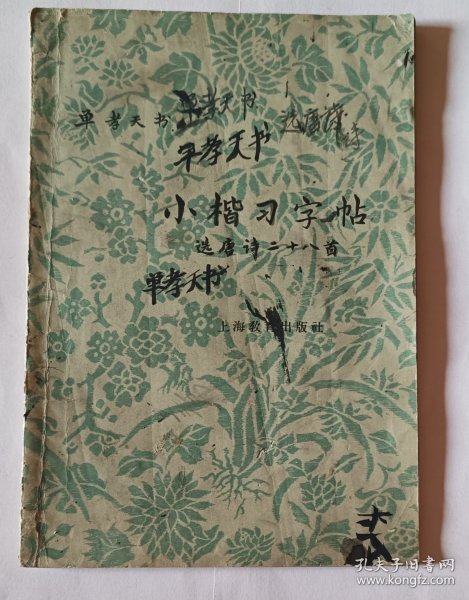 单孝天书 单孝天书
选唐诗
单孝天书
小楷习字帖
选唐诗二十八首
单孝天书
上海教育出版社
孔夫子旧书网
www.kongfz.com